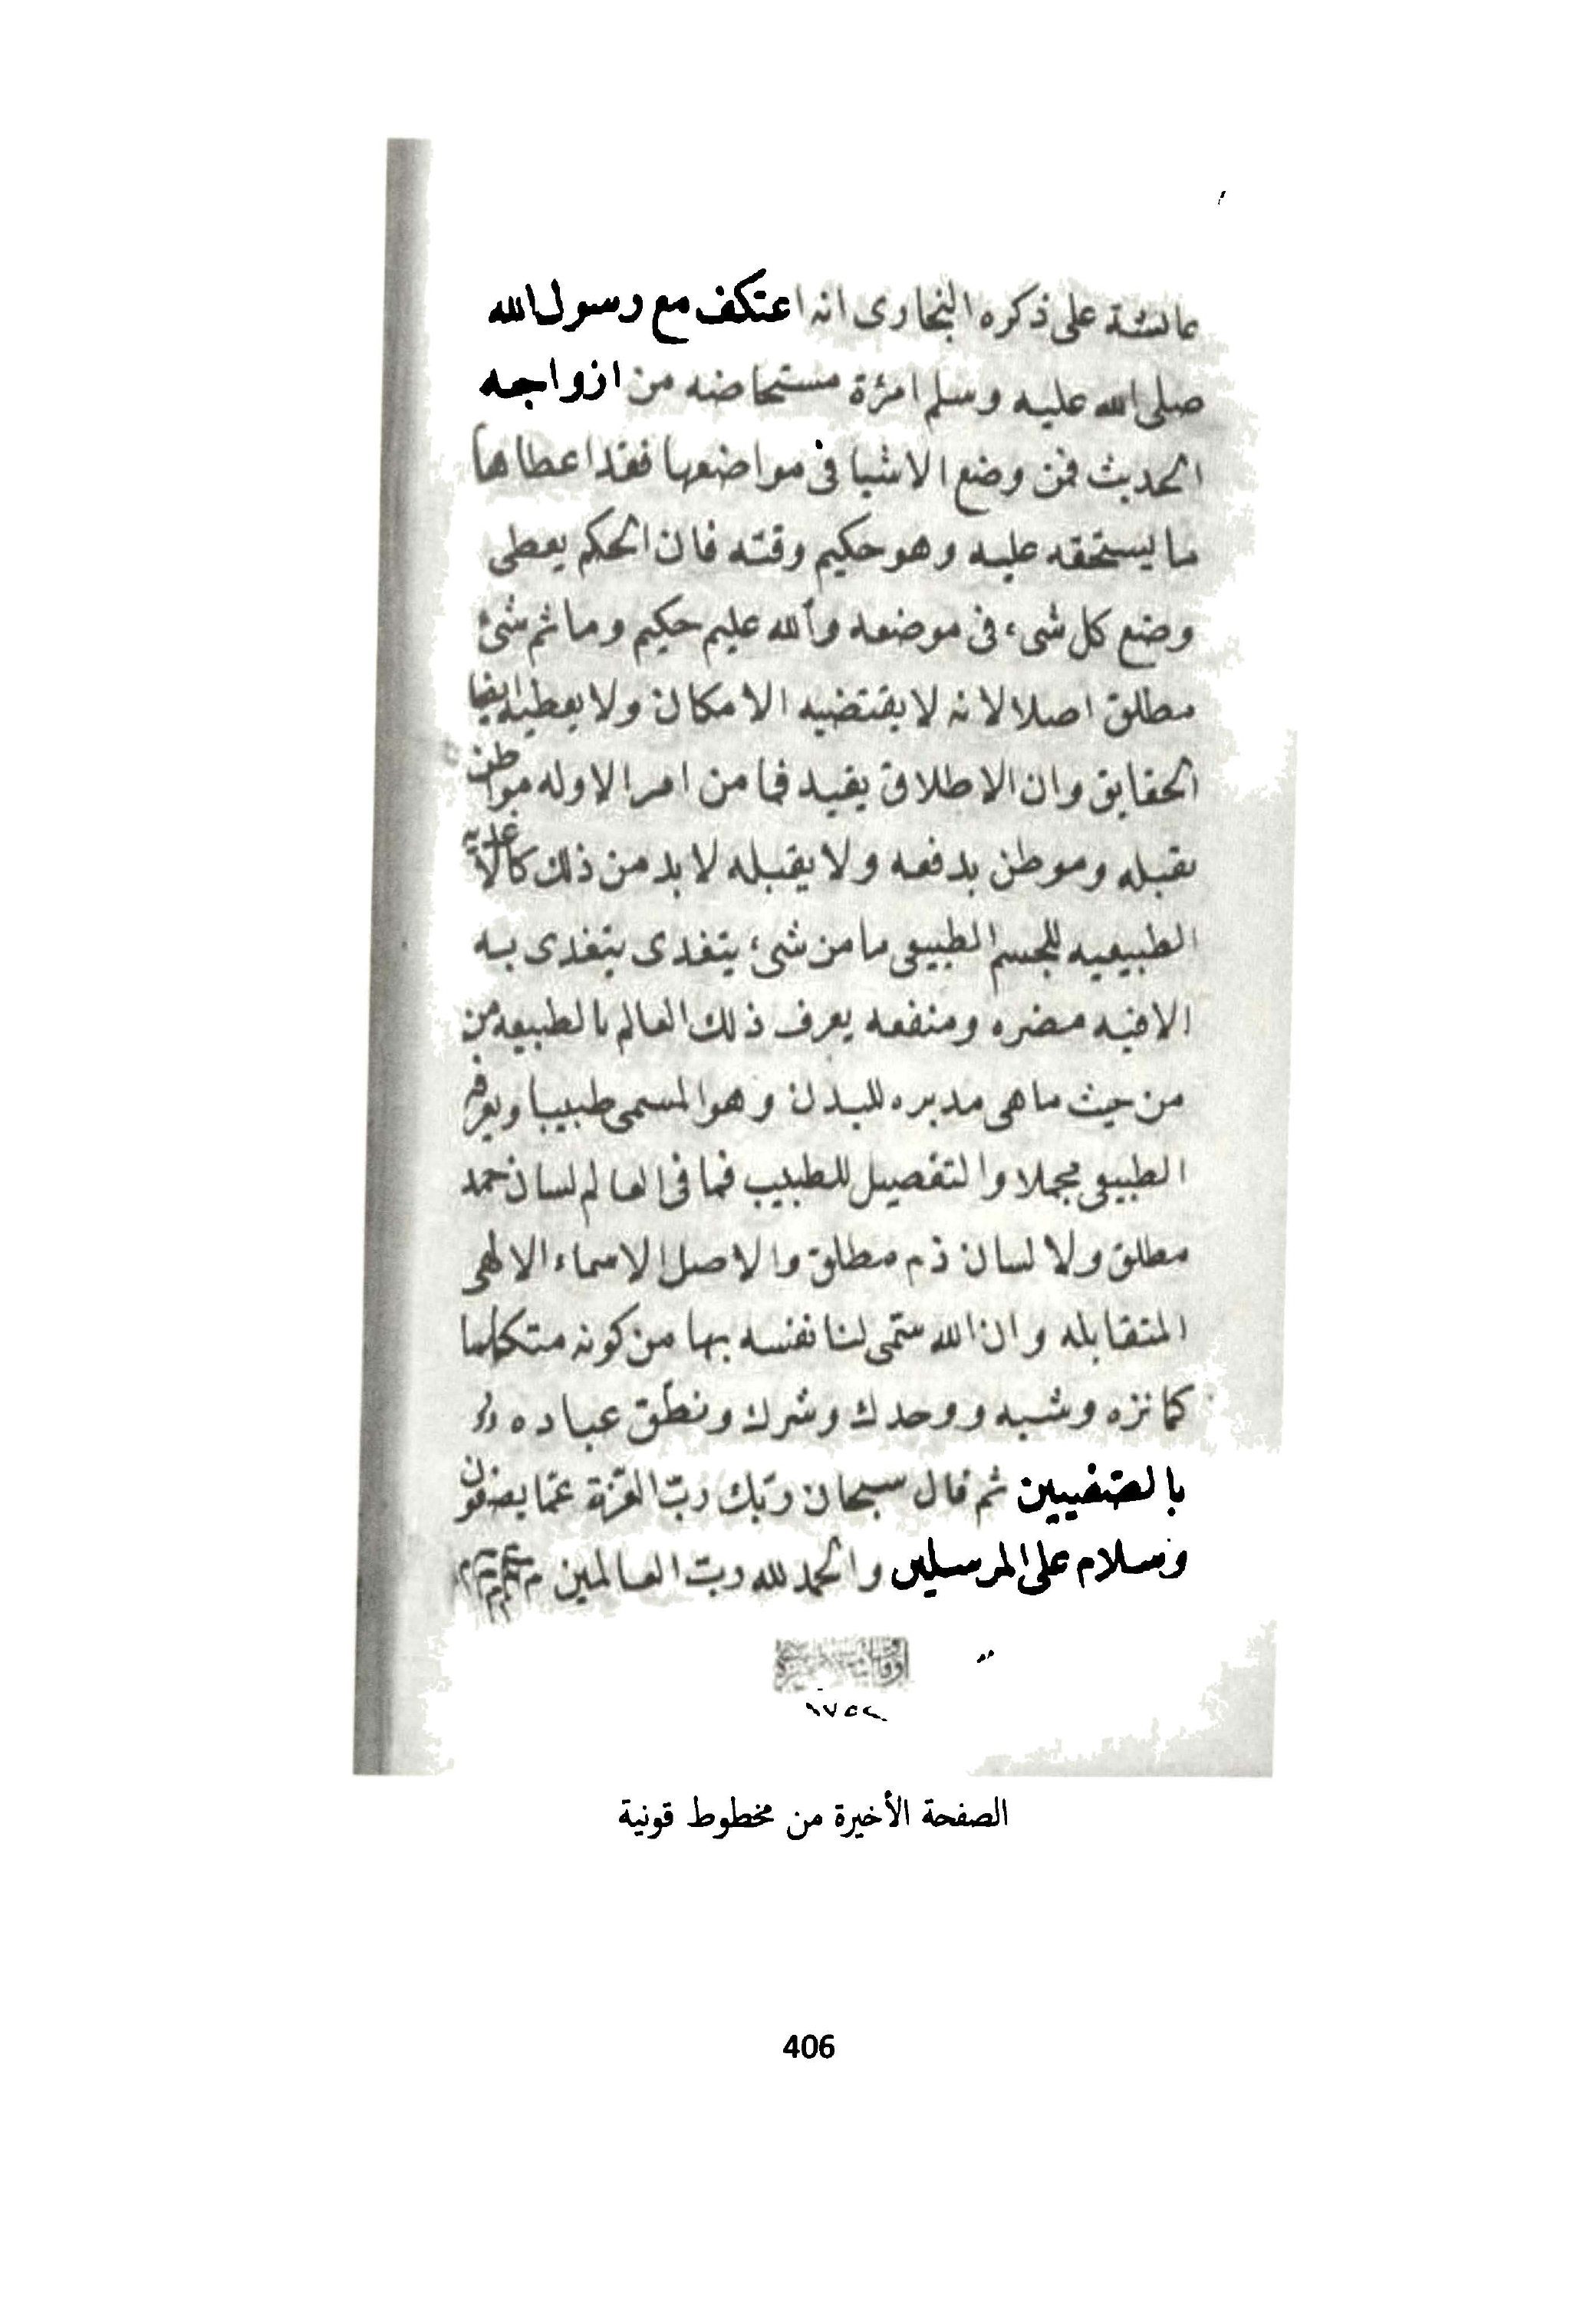 عائشة على ذكره البخارى انه اعتكف مع رسول الله
صلى الله عليه وسلم امرٔة مستحاضه من ازواجه
الحديث فمن وضع الاشيا فى مواضعها فقد اعطاها
ما يستحقه عليه وهو حكيم وقته فان الحكم يعطى
وضع كل شىء فى موضعه والله عليم حكيم وما ثم شئ
مطلق اصلا لانه لا يقتضيه الامكان ولا يعطيه ايضا
الحقايق وان الاطلاق يقيد فما من امر الا وله موطن
يقبله وموطن يدفعه ولا يقبله لا بد من ذلك كالاغذيه
الطبيعيه للجسم الطبيعى ما من شىء يتغدى يتغدى به
الا فيه مضره ومنفعه يعرف ذلك العالم بالطبيعه من
من حيث ما هى مدبره للبدن وهو المسمى طبيبا ويعرفه
الطبيعى مجملا والتفصيل للطبيب فما فى العالم لسان حمد
مطلق ولا لسان ذم مطلق والاصل الاسماء الالهى
المتقابله وان الله سمّى لنا نفسه بها من كونه متكلما
كما نزه وشبه ووحدك وشرك ونطّق عباده
بالصّفيين ثم قال سبحان ربّك ربّ العزّة عمّا يصفون
وسلام على المرسلين والحمد لله ربّ العالمين
الصفحة الأخيرة من مخطوط قونية
406